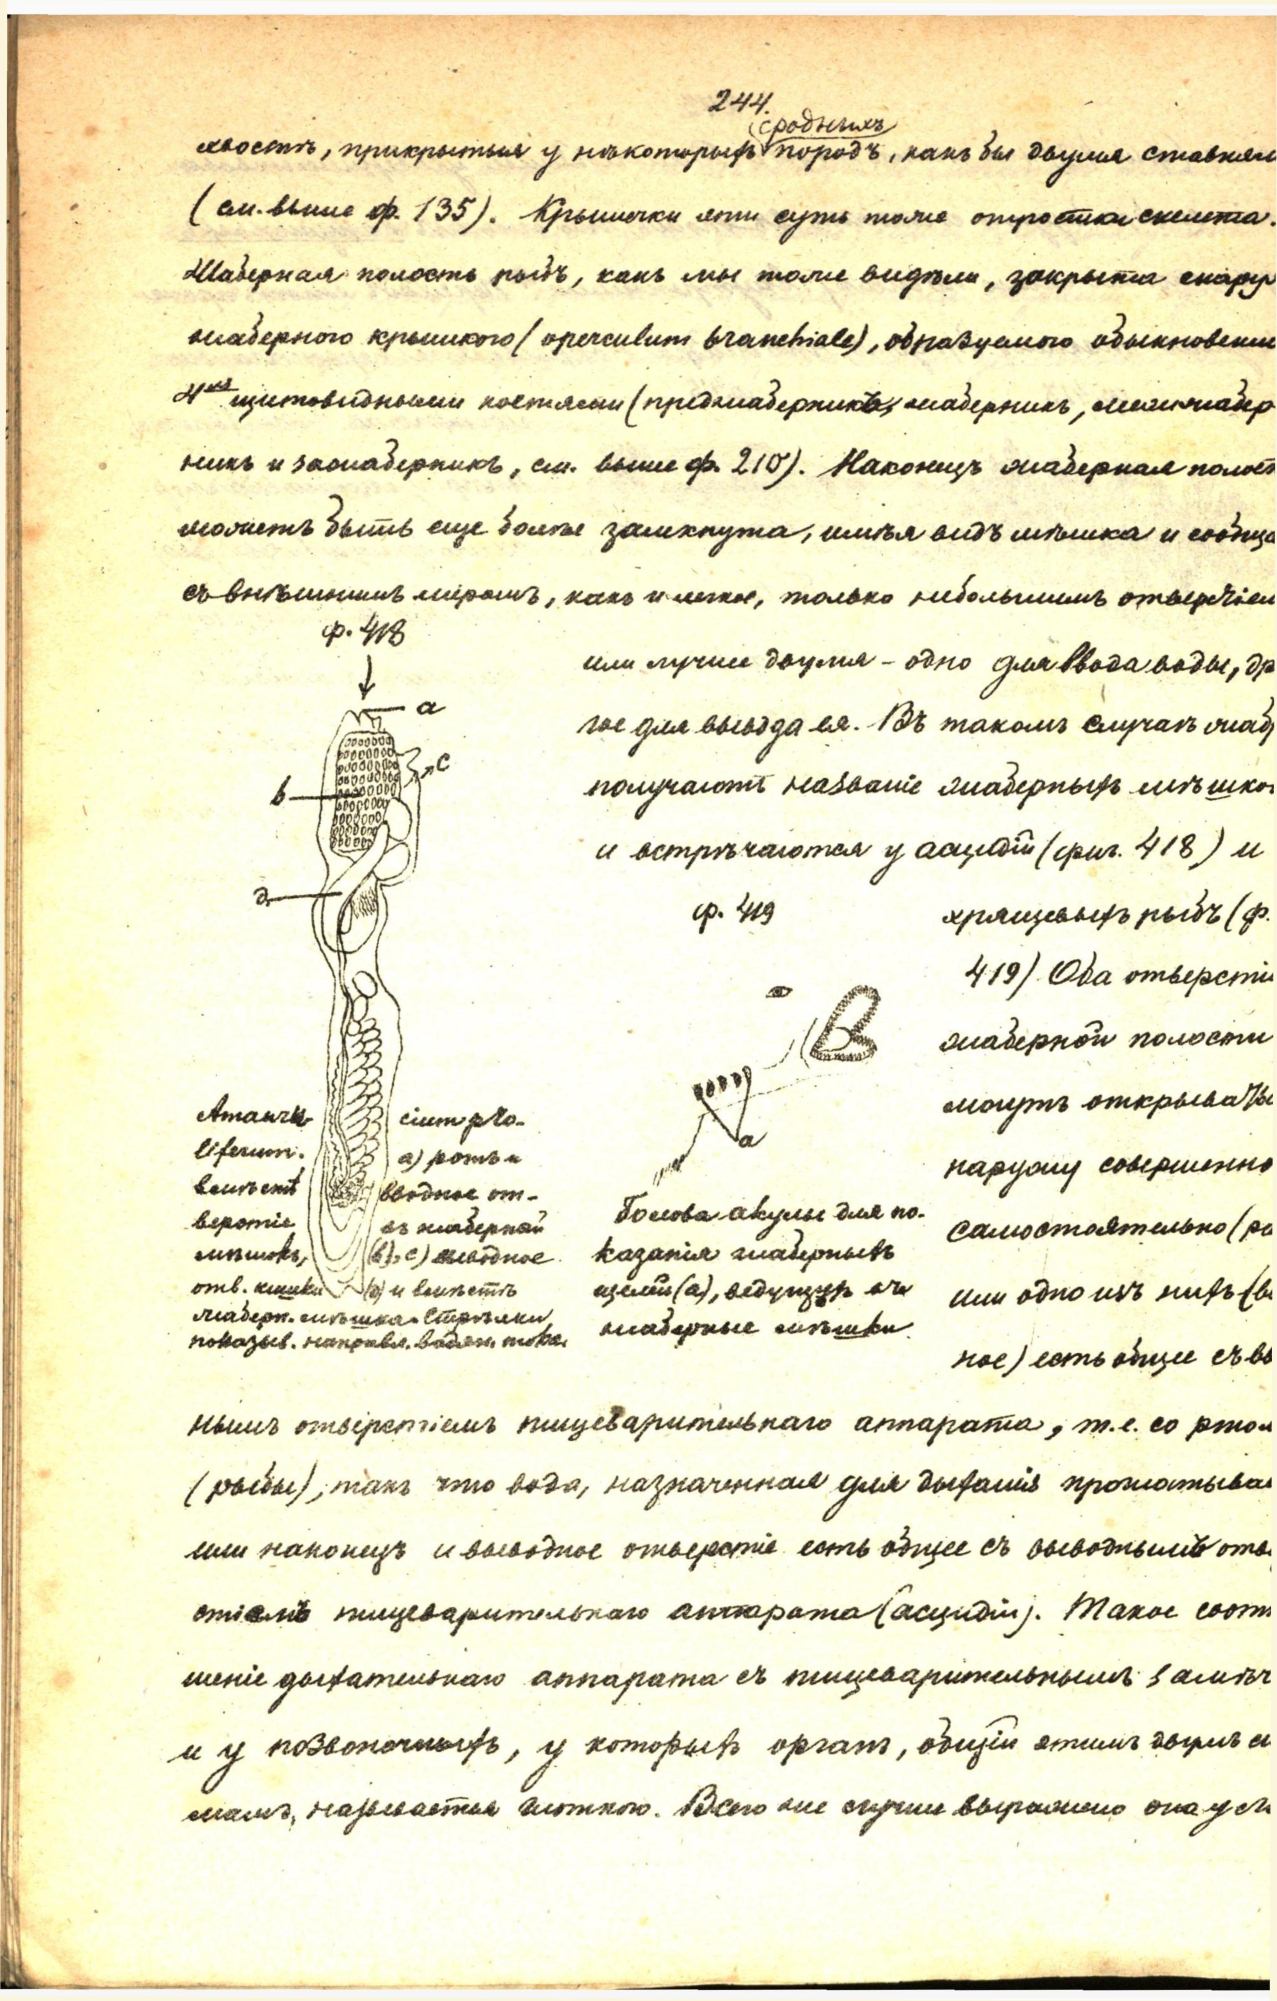 244.
сродныхъ
хвостъ, прикрытыя у нѣкоторыхъ породъ, какъ бы двумя ставнями
(см. выше ф. 135). Крышечки эти суть тоже отростки скелета.
Жаберная полость рыбъ, какъ мы тоже видѣли, закрыта снаруж
жаберною крышкою (operculum branchiale), образуемою обыкновенно
4мя щитовидными костями (преджаберникъ, жаберникъ, межжабер
никъ и зажаберникъ, см. выше ф. 210). Наконецъ жаберная полост
можетъ быть еще болѣе замкнута, имѣя видъ мѣшка и сообща
съ внѣшнимъ міромъ, какъ и легкое, только небольшимъ отверстіем
ф. 418
или лучше двумя – одно для ввода воды, др
гое для вывода ея. Въ такомъ случаѣ жабр
получаютъ названіе жаберныхъ мѣшков
и встрѣчаются у асцидій (фиг. 418) и
a
c
b
d
ф. 419
хрящевыхъ рыбъ (ф.
419) Оба отверстія
жаберной полости
могутъ открываться
наружу совершенно
самостоятельно (ра
или одно изъ нихъ (вв
ное) есть общее съ вв
a
Amaurucium pro-
liferum. a) ротъ и
вмѣстѣ вводное от-
верстіе въ жаберной
мѣшокъ, (b), c) выводное
отв. кишки (d) и вмѣстѣ
жаберн. мѣшка. Стрѣлки
показыв. направл. водян. тока.
Голова акулы для по-
казанія жаберныхъ
щелей (а), ведущихъ въ
жаберные мѣшки
нымъ отверстіемъ пищеварительнаго аппарата, т.е. со ртом
(рыбы), такъ что вода, назначенная для дыханія проглатывает
или наконецъ и выводное отверстіе есть общее съ выводнымъ отве
стіемъ пищеварительнаго аппарата (асцидіи). Такое соотн
шеніе дыхательнаго аппарата съ пищеварительнымъ замѣч
и у позвоночныхъ, у которыхъ органъ, общій этимъ двумъ си
мамъ, называется глоткою. Всего же лучше выражено она у